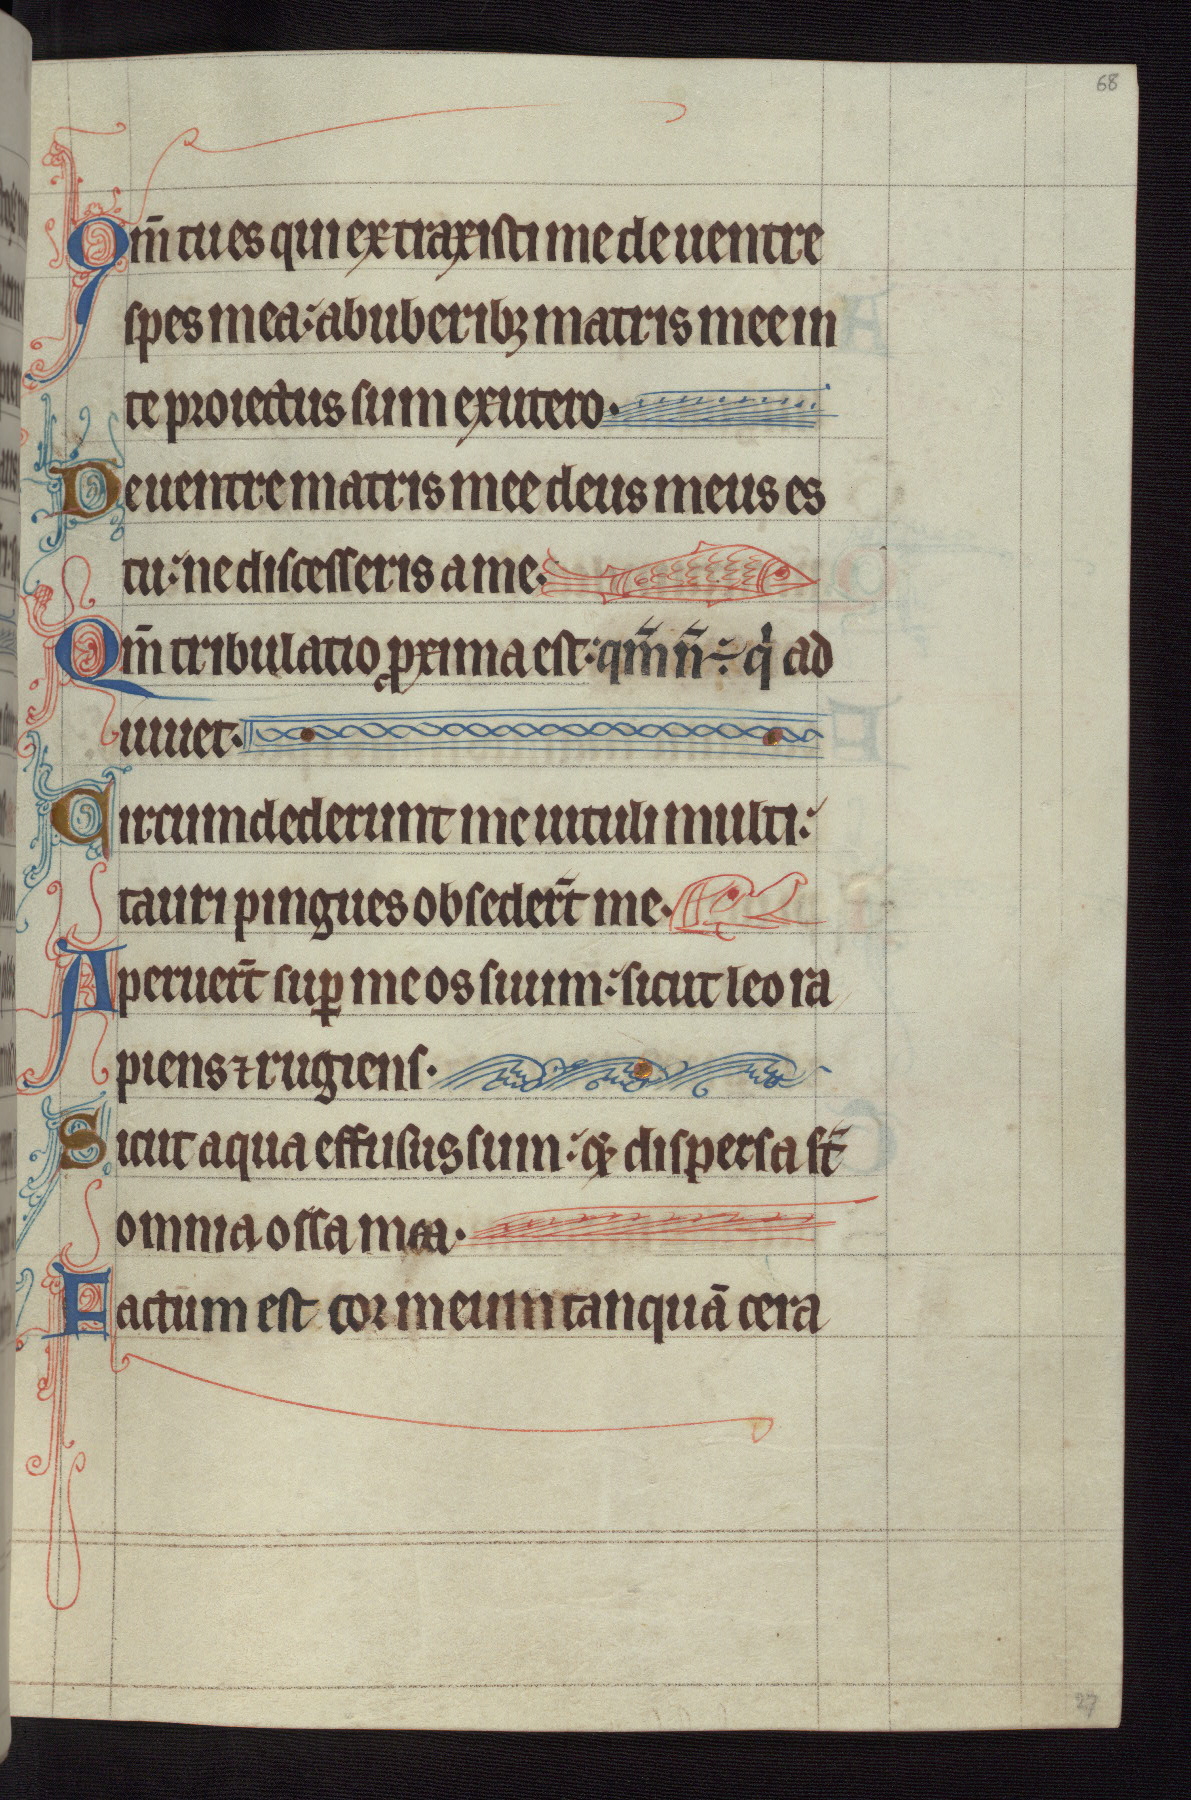 68
Qm̄ tu es qui extraxisti me de uentre
spes mea: ab uberibꝫ matris mee in
te proiectus sum ex utero.
De uentre matris mee deus meus es
tu: ne discesseris a me.
Qm̄ tribulatio ꝓxima est: qm̄ n̄ ÷ qi ad
iuuet.
Circumdederunt me uituli multi:
tauri pingues obsedert̄ me.
Aperuert̄ suꝑ me os suum: sicut leo ra
piens ⁊ rugiens.
Sicut aqua effusus sum: ⁊ dispersa st̄
omnia ossa mea.
Factum est cor meum tanquā cera
27